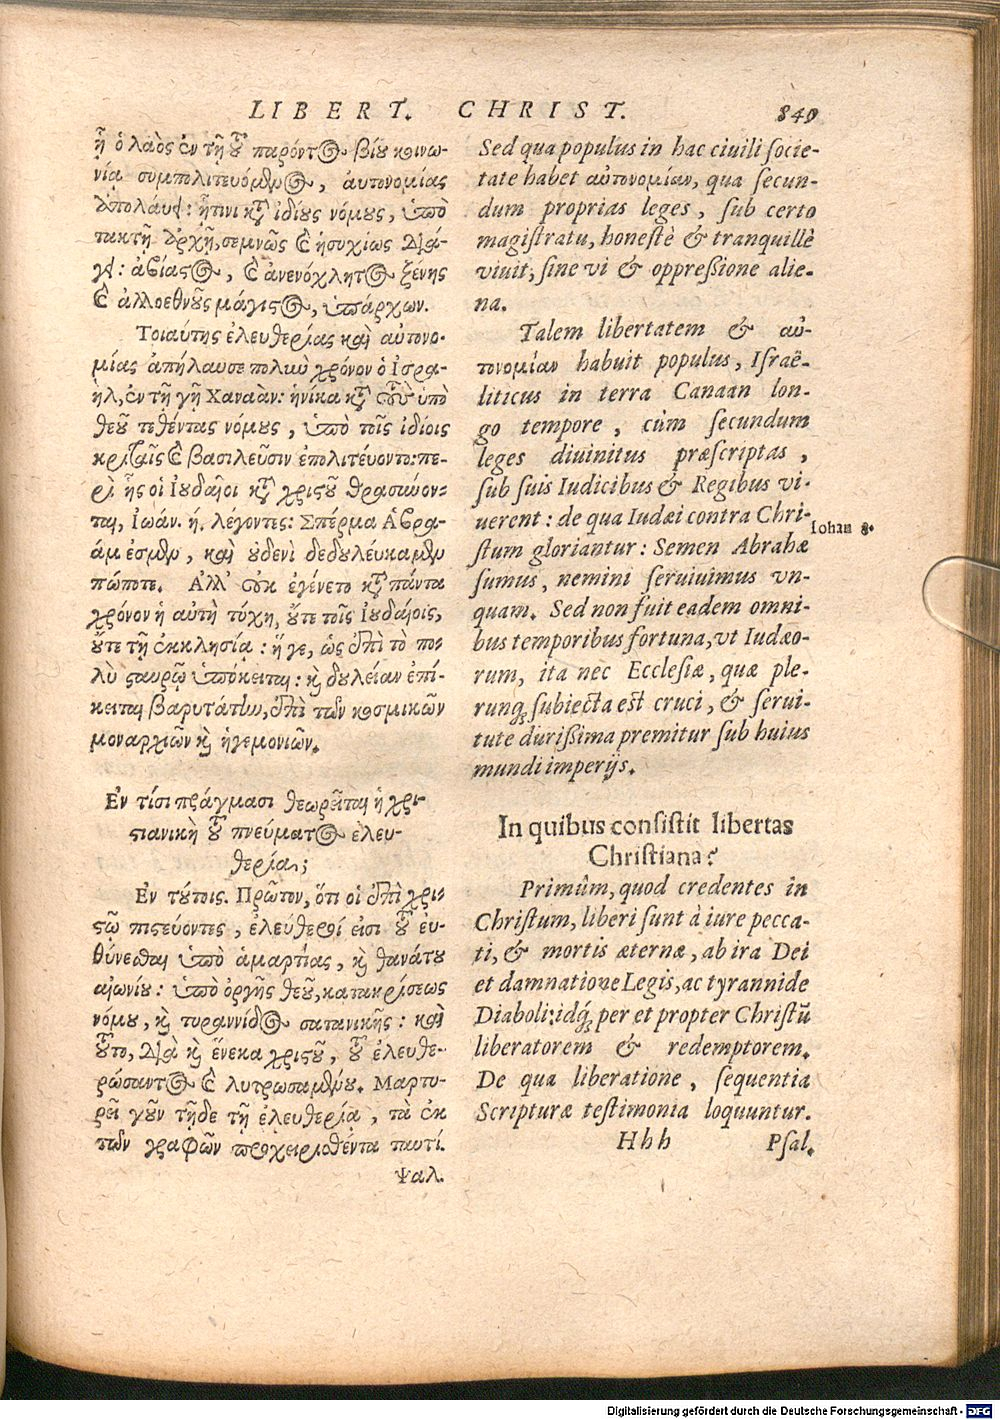 LIBERT. CHRIST. 849
ἢ ὁ λαὸς ἐν τῇ τοῦ παρόντος βίου κοινω-
νίᾳ συμπολιτευόμενος, αὐτονομίας
ἀπολαύει: ᾗτινι κατ' ἰδίους νόμους, ὑπὸ
τακτῇ ἀρχῇ, σεμνῶς καὶ ἡσυχίως διά-
γει: ἀβίαστος, καὶ ἀνενόχλητος ξένης
καὶ ἀλλοεθνοῦς μάστιγος, ὑπάρχων.
Τοιαύτης ἐλευθερίας καὶ αὐτονο-
μίας ἀπήλαυσε πολὺν χρόνον ὁ Ἰσρα-
ὴλ, ἐν τῇ γῇ Χαναὰν: ἡνίκα κατὰ τοὺς ὑπὸ
θεοῦ τεθέντας νόμους, ὑπὸ τοῖς ἰδίοις
κριταῖς καὶ βασιλεῦσιν ἐπολιτεύοντο: πε-
ρὶ ἧς οἱ Ἰουδαῖοι κατὰ χριστοῦ θρασύνον-
ται, Ἰωάν. ή. λέγοντες: Σπέρμα Ἀβρα-
άμ ἐσμεν, καὶ οὐδενὶ δεδουλεύκαμεν
πώποτε. Ἀλλ' οὐκ ἐγένετο κατὰ πάντα
χρόνον ἡ αὐτὴ τύχη, οὔτε τοῖς Ἰουδαίοις,
οὔτε τῇ ἐκκλησίᾳ: ἥ γε, ὡς ἐπὶ τὸ πο-
λὺ σταυρῷ ὑπόκειται: καὶ δουλείαν ἐπί-
κειται βαρυτάτην, ἐπὶ τῶν κοσμικῶν
μοναρχιῶν καὶ ἡγεμονιῶν.
Ἐν τίσι πράγμασι θεωρεῖται ἡ χρι-
στιανικὴ τοῦ πνεύματος ἐλευ-
θερία;
Ἐν τούτοις. Πρῶτον, ὅτι οἱ ἐπὶ χρι-
στῷ πιστεύοντες, ἐλεύθεροί εἰσι τοῦ εὐ-
θύνεσθαι ὑπὸ ἁμαρτίας, καὶ θανάτου
αἰωνίου: ὑπὸ ὀργῆς θεοῦ, κατακρίσεως
νόμου, καὶ τυραννίδος σατανικῆς: καὶ
τοῦτο, διὰ καὶ ἕνεκα χριστοῦ, τοῦ ἐλευθε-
ρώσαντος καὶ λυτρωσαμένου. Μαρτυ-
ρεῖ γοῦν τῇδε τῇ ἐλευθερίᾳ, τὰ ἐκ
τῶν γραφῶν προχειρισθέντα ταυτί.
Ψαλ.
Sed qua populus in hac ciuili socie-
tate habet αὐτονομίαν, qua secun-
dum proprias leges, sub certo
magistratu, honestè & tranquillè
viuit, sine vi & oppressione alie-
na.
Talem libertatem & αὐ-
τονομίαν habuit populus, Israë-
liticus in terra Canaan lon-
go tempore, cùm secundum
leges diuinitus præscriptas,
sub suis Iudicibus & Regibus vi-
uerent: de qua Iudæi contra Chri-
stum gloriantur: Semen Abrahæ
sumus, nemini seruiuimus vn-
quam. Sed non fuit eadem omni-
bus temporibus fortuna, vt Iudæo-
rum, ita nec Ecclesiæ, quæ ple-
runq; subiecta est cruci, & serui-
tute durissima premitur sub huius
mundi imperijs.
Iohan 8.
In quibus consistit libertas
Christiana?
Primùm, quod credentes in
Christum, liberi sunt à iure pecca-
ti, & mortis æternæ, ab ira Dei
et damnatione Legis, ac tyrannide
Diaboli: idq́; per et propter Christũ
liberatorem & redemptorem.
De qua liberatione, sequentia
Scripturæ testimonia loquuntur.
Hhh Psal.
Digitalisierung gefördert durch die Deutsche Forschungsgemeinschaft - DFG